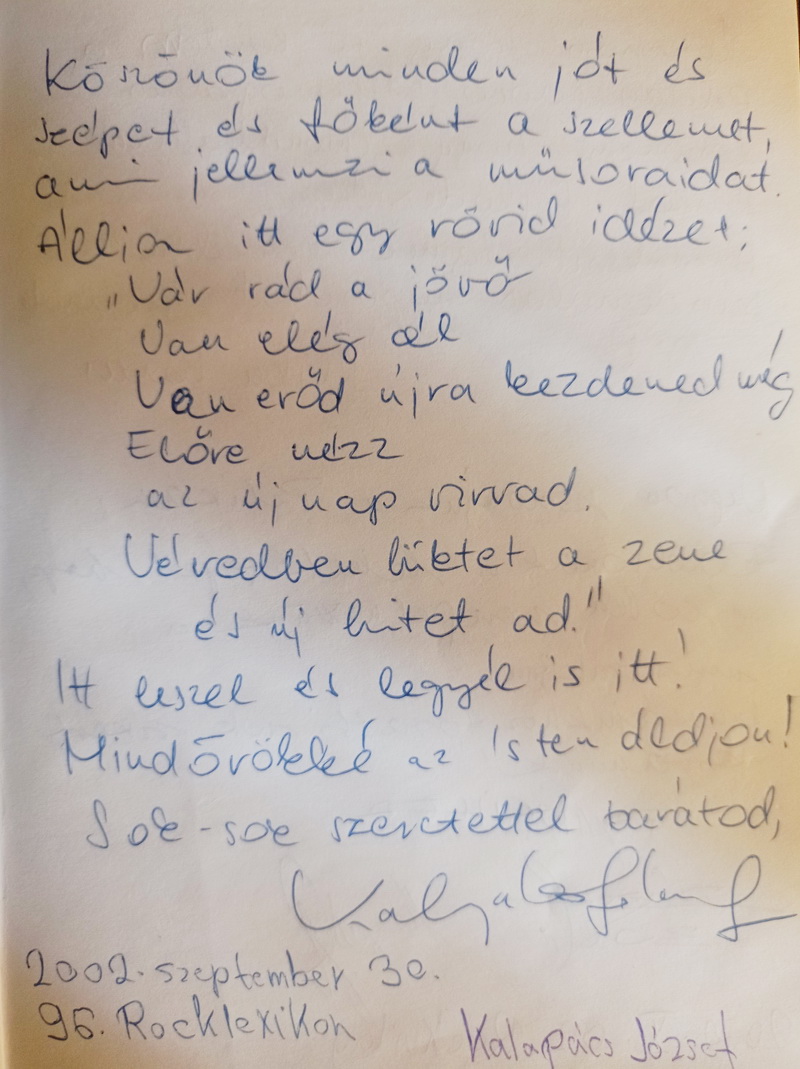 Köszönök minden jót és
szépet és főként a szellemet,
ami jellemzi a műsoraidat.
Álljon itt egy rövid idézet:
„Vár rád a jövő
Van elég cél
Van erőd újra kezdened még
Előre nézz
az új nap virrad.
Véredben lüktet a zene
és új hitet ad."
Itt leszel és legyél is itt!
Mindörökké az Isten áldjon!
Sok-sok szeretettel barátod,
2002. szeptember 30.
96. Rocklexikon
Kalapács József